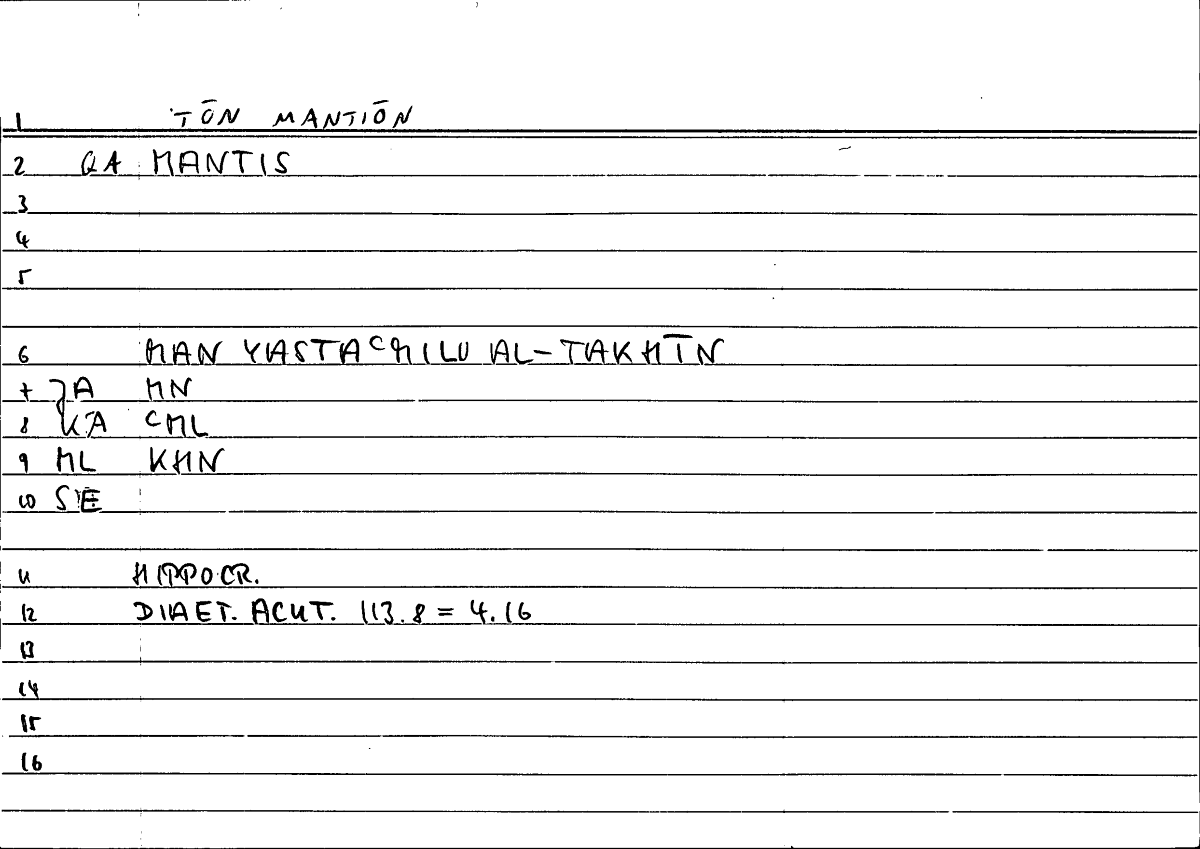 1 TŌN MANTIŌN
2 QA MANTIS
3
4
5
6 MAN YASTAᶜMILU AL-TAKHMĪN
7 JA MN
8 KA ᶜML
9 ML KHMN
10 SE
11 HIPPOCR.
12 DIAET. ACUT. 113.8 = 4.16
13
14
15
16